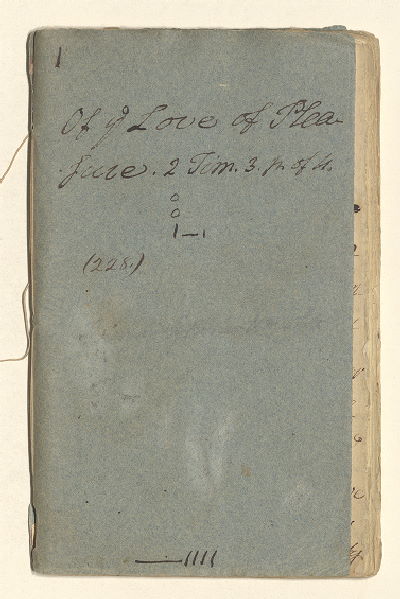 1
Of yᵉ Love of Plea-
sure. 2 Tim. 3. p. of 4.
(228.)